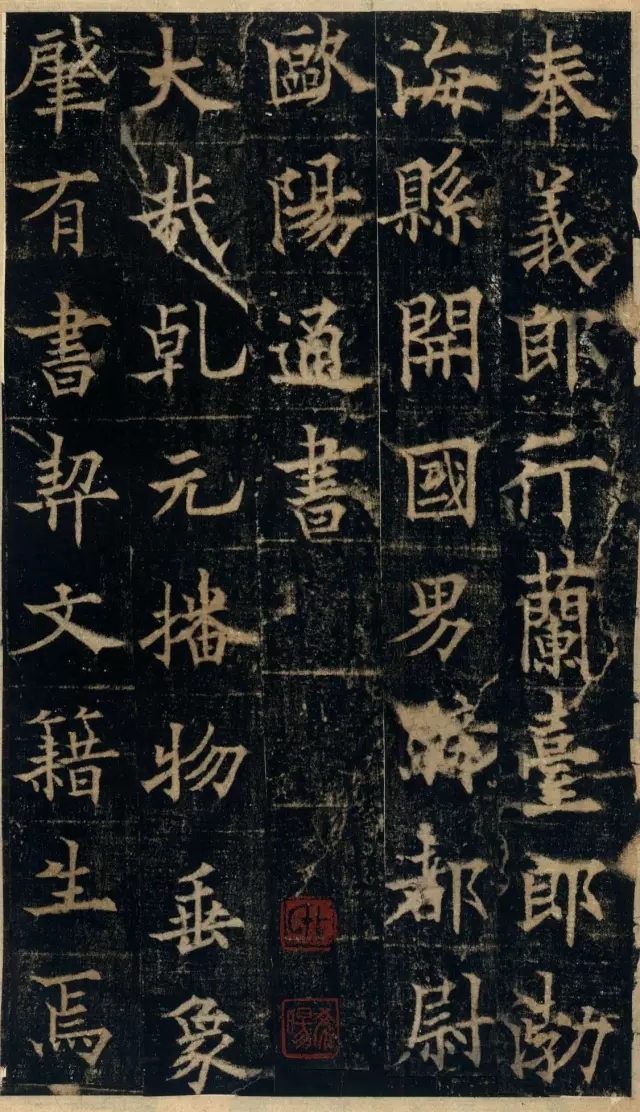 奉義郎行蘭臺郎渤
海縣開國男都尉
歐陽通書
大哉乾元播物垂象
肇有書契文籍生焉